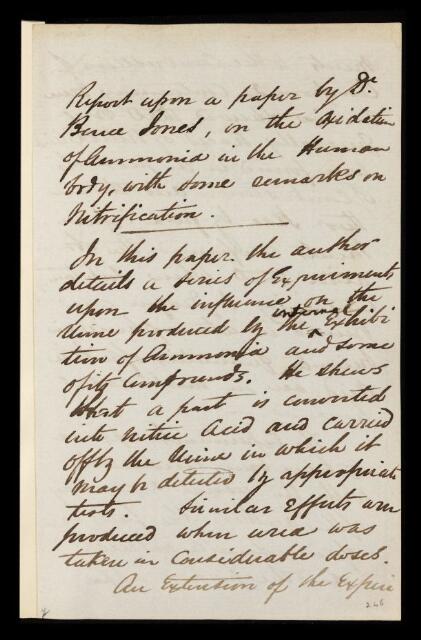 Report upon a paper by Dr
Bence Jones, on the oxidation
of Ammonia in the Human
body, with some remarks on
Nitrification.
In this paper the author
details a series of Experiments
upon the influence on the
Urine produced by the internal Exhibi
tion of Ammonia and some
of its Compounds. He shews
that a part is converted
into Nitric Acid and carried
off by the Urine in which it
may be detected by appropriate
tests. Similar Effects are
produced when urea was
taken in Considerable doses.
An Extension of the Experi
246